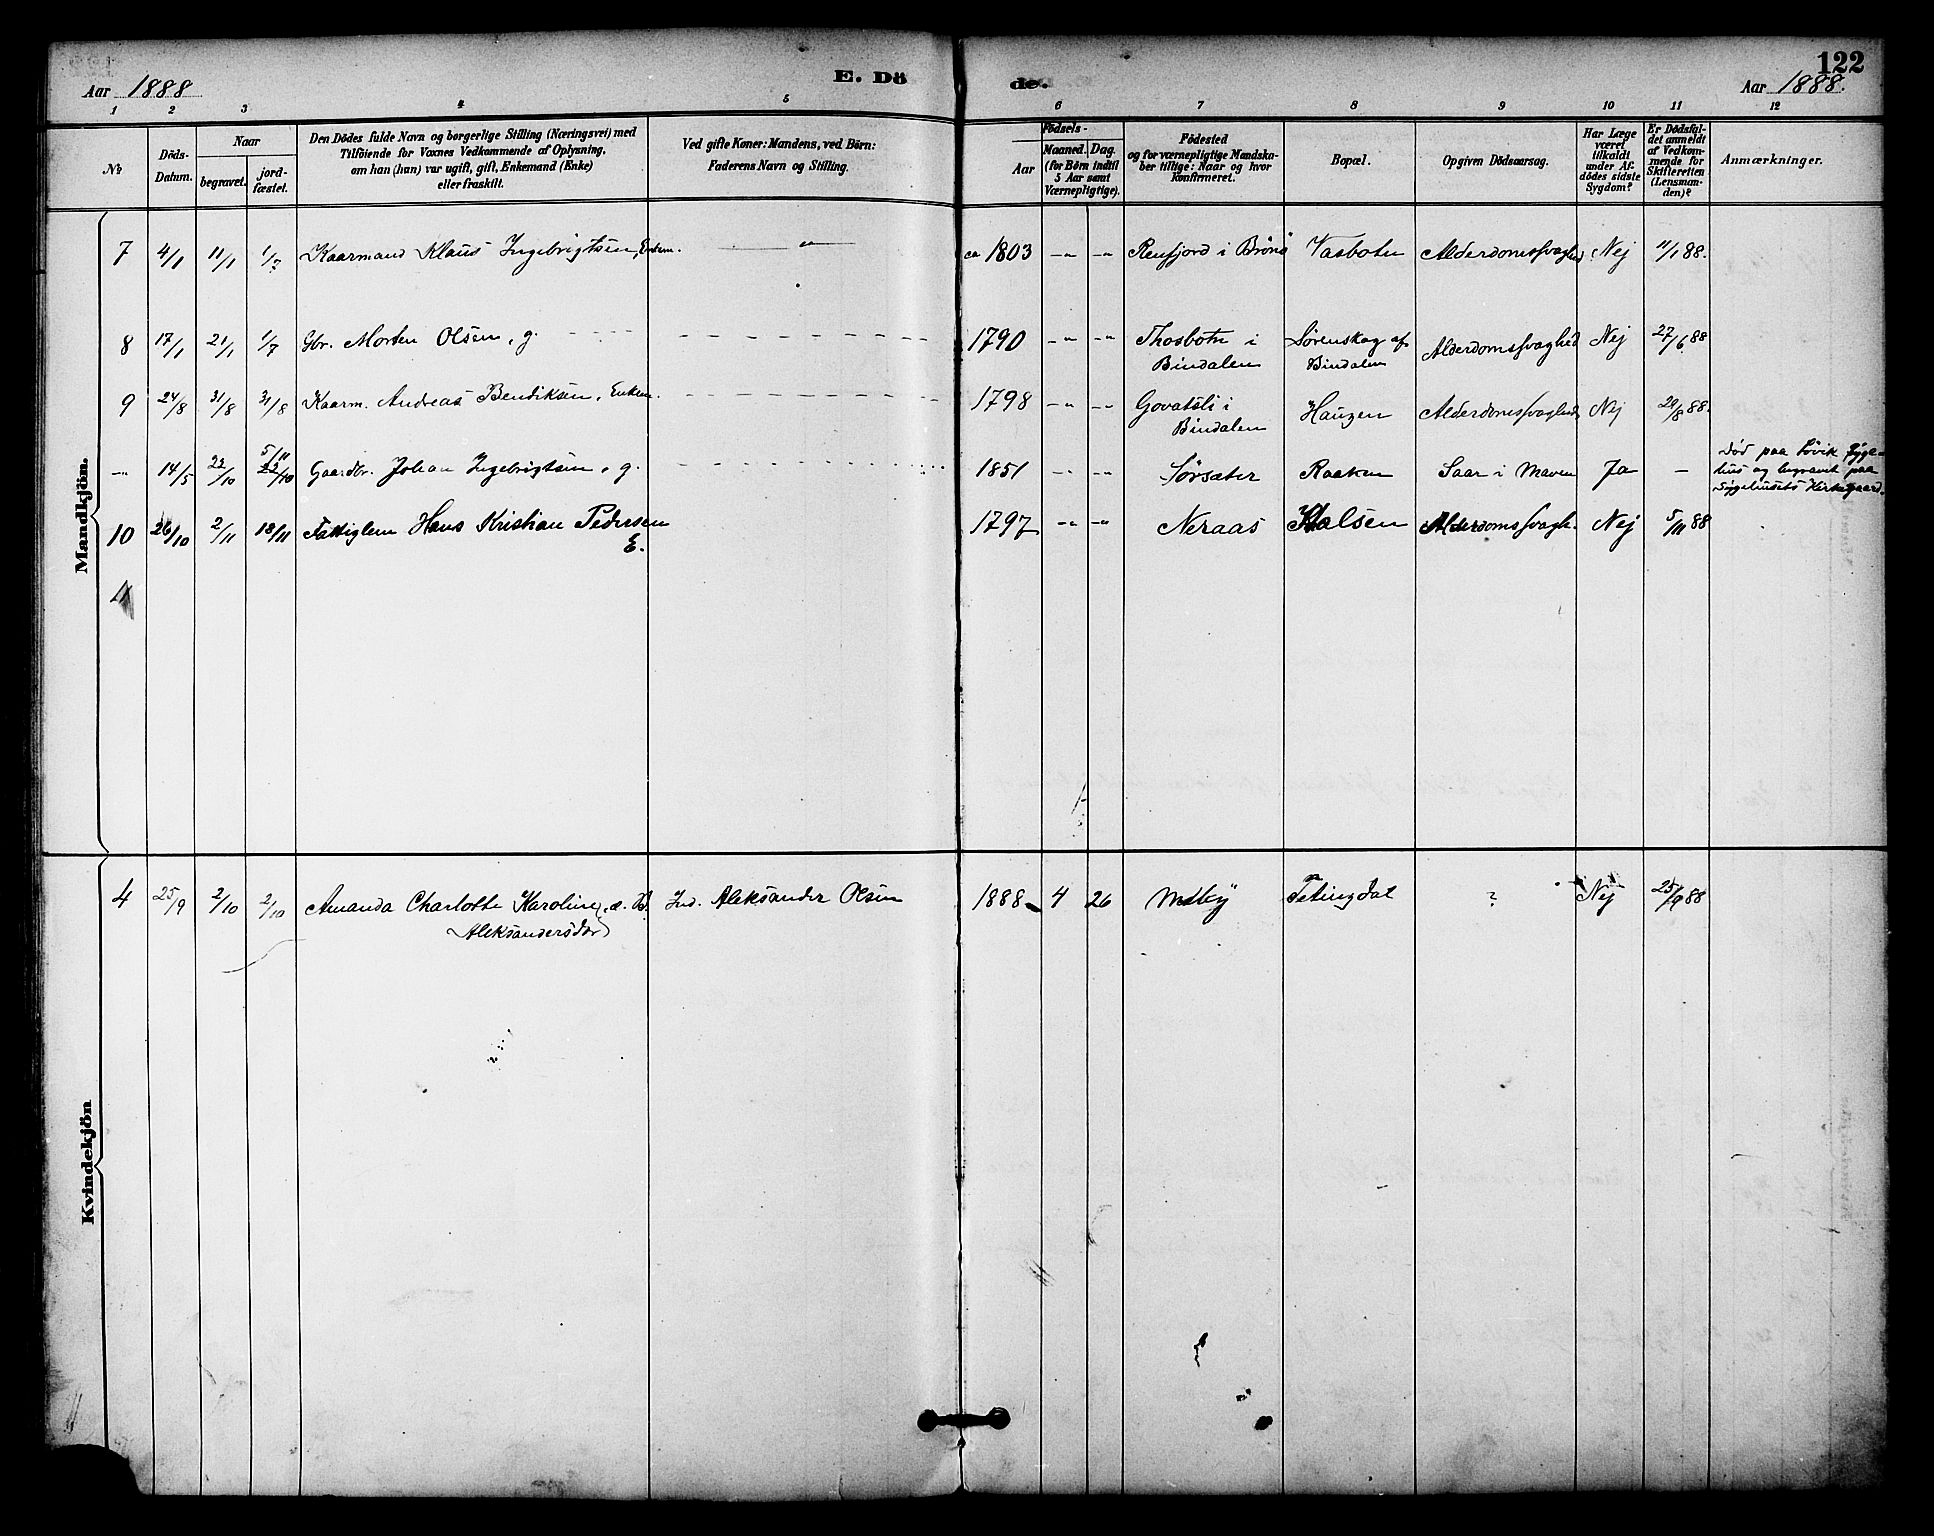 122
Aar 1888 E. Dö de. Aar 1888.
1 2 3 4 5 6 7 8 9 10 11 12
№
Döds-Datum.
Naar
begravet.
jord-fæstet.
Den Dödes fulde Navn og borgerlige Stilling (Næringsvei) med
Tilföiende for Voxnes Vedkommende af Oplysning,
om han (hun) var ugift, gift, Enkemand (Enke)
eller fraskilt.
Ved gifte Koner: Mandens, ved Börn:
Faderens Navn og Stilling.
Födsels-
Aar
Maaned. Dag.
(for Börn indtil
5 Aar samt
Værnepligtige).
Födested
og for værnepligtige Mandska-
ber tillige: Naar og hvor
konfirmeret.
Bopæl.
Opgiven Dödsaarsag.
Har Læge
været
tilkaldt
under Af-
dödes sidste
Sygdom?
Er Dödsfal-
det anmeldt
af Vedkom-
mende for
Skifteretten
(Lensman-
den)?
Anmærkninger.
Mandkjön.
7 4/1 11/1 1/7 Kaarmand Klaus Ingebrigtsen, Enkem. — " — ca 1803 -"- -"- Renfjord i Brönö Vasbotn Alderdomssvaghed Nej 11/1 88.
8 17/1 21/1 1/7 Gbr. Morten Olsen, g. 1790 -"- -"- Thosbotn i Bindalen Sörenskag af Bindalen Alderdomssvaghed Nej 27/6 88
9 24/8 31/8 31/8 Kaarm. Andreas Bendiksen, Enkem. 1798 -"- -"- Govatsli i Bindalen Haugen Alderdomssvaghed Nej 29/8 88.
-"- 14/5 22/10 5/11 22/10 Gaardbr. Johan Ingebrigtsen, g. 1851 -"- -"- Sörsæter Raaken Saar i Maven Ja — Död paa Lövik Syge-
hus og begravet paa
Sygehusets Kirkegaard.
10 26/10 2/11 18/11 Fattiglem Hans Kristian Pedersen
E. 1797 -"- -"- Neraas Kalsen Alderdomssvagh. Nej 5/11 88
11
Kvindekjön
4 25/9 2/10 2/10 Amanda Charlotte Karoline, æ. B.
Aleksandersdtr) Ind. Aleksander Olsen 1888 4 26 Melby Tetingdal ? Nej 25/9 88